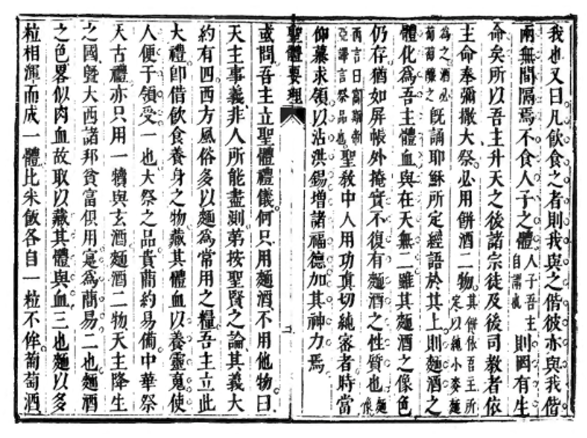 我也又曰凡飲食之者則我與之偕彼亦與我偕
兩無間隔焉不食人子之體人子吾主自謂則罔有生
命矣所以吾主升天之後諸宗徒及後司教者依
主命奉彌撒大祭必用餅酒二物其餅依吾主所定以純小麥麵
為之酒必葡萄釀之既誦耶穌所定經語於其上則麵酒之
體化為吾主體血與在天無二雖其麵酒之像色
仍存猶如屏帳外掩實不復有麵酒之性質也麵像
西言曰窩斯帝亞譯言祭品也聖教中人用功真切純密者時當
仰慕求領以沾洪錫增諸福德加其神力焉
聖體要理
或問吾主立聖體禮儀何只用麵酒不用他物曰
天主事義非人所能盡測第按聖賢之論其義大
約有四西方風俗多以麵為常用之糧吾主立此
大禮卽借飲食養身之物藏其體血以養靈䰟使
人便于領受一也大祭之品貴簡約易備中華祭
天古禮亦只用一犢與玄酒麵酒二物天主降生
之國曁大西諸邦貧富俱用寔為簡易二也麵酒
之色畧似肉血故取以藏其體與血三也麵以多
粒相渾而成一體比朱飯各自一粒不侔葡萄酒